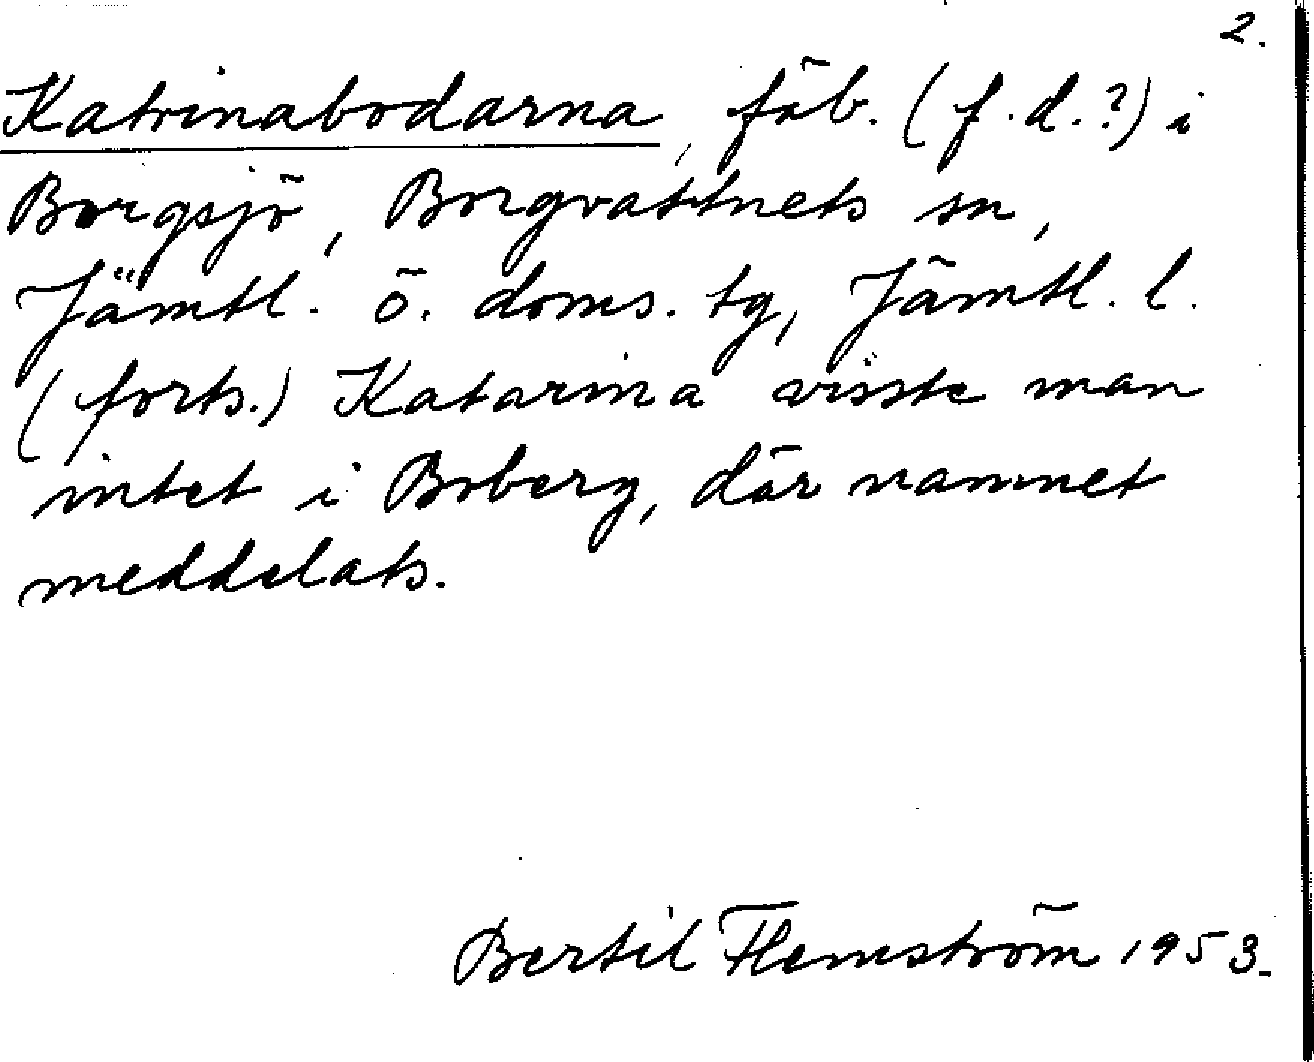 2.
Katrinabodarna, fäb. (f.d.?) i
Borgsjö, Borgvattnets sn,
Jämtl. ö. doms. tg, Jämtl. l.
(forts.) Katarina visste man
intet i Boberg, där namnet
meddelats.
Bertil Flemström 1953.